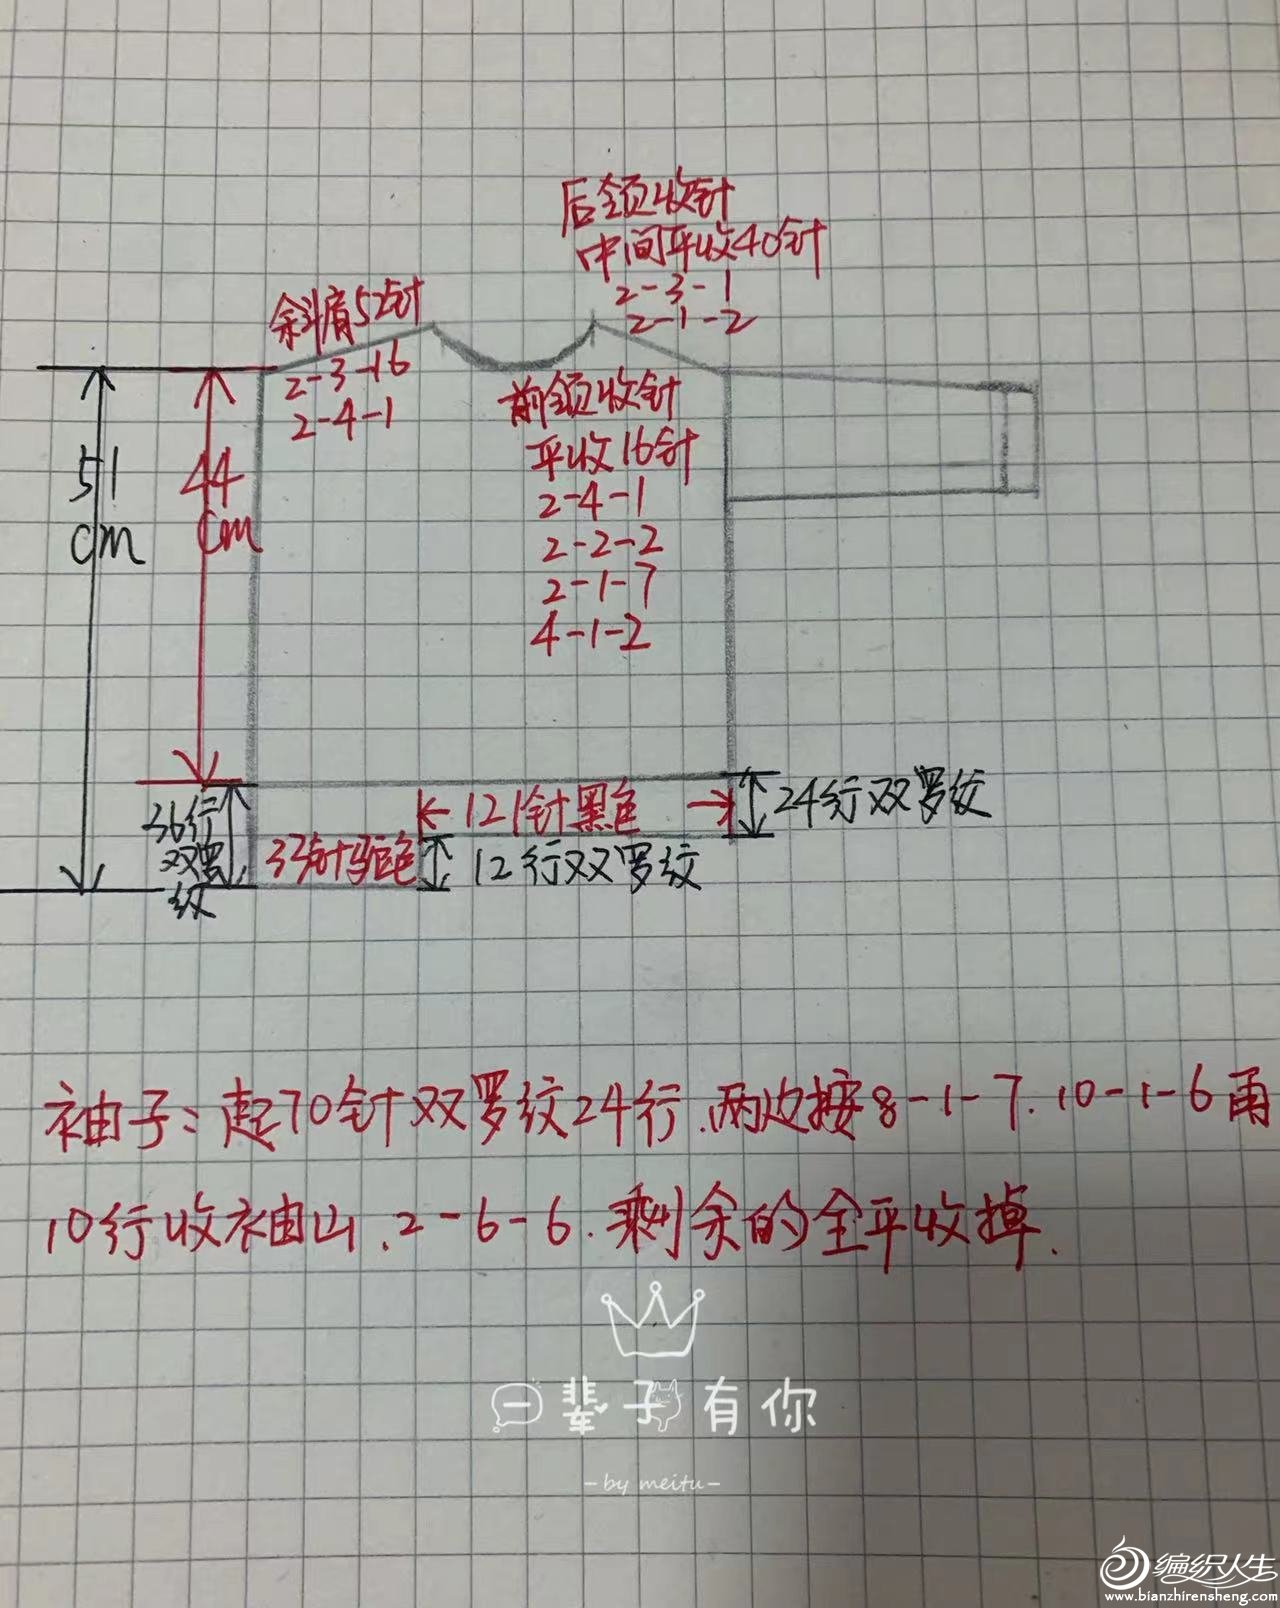 后领收针
中间平收40针
2-3-1
2-1-2
余斜肩52针
2-3-16
2-4-1
前领收针
平收16针
2-4-1
2-2-2
2-1-7
4-1-2
51
cm
44
cm
36行
双罗
纹
33针驼色
121针黑色
24行双罗纹
12行双罗纹
袖子：起70针双罗纹24行.两边按8-1-7.10-1-6再
10行收袖山.2-6-6.剩余的全平收掉.
一辈子有你
-by meitu-
编织人生
www.bianzhirensheng.com